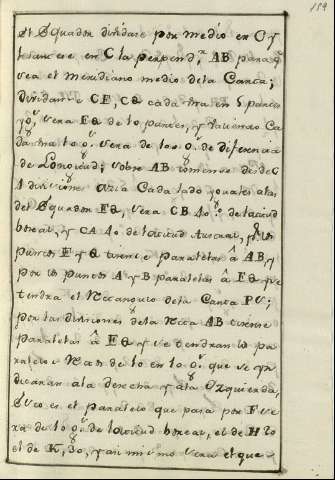 189
el Equador dividase por medio en C y
tirandose en C la perpend.r AB para q̃
sea el meridiano medio dela Carta;
dividanse CE, CQ cada una en 5 partes
y será EQ de 10 partes, y valiendo Ca
da una 10.° será de 100.° de diferencia
de Longitud; sobre AB tomense desde C
divisiones acia Cada lado yguales alas
del Equador EQ, será CB 40.° de latitud
boreal, y CA 40 de latitud Austral, y por los
puntos E y Q tirense paralelas â AB, y
por los puntos A y B paralelas â EQ y se
tendra el Rectangulo dela Carta
por las divisiones dela Recta AB tirense
paralelas â EQ y se tendran los pa
ralelos de 10 en 10.° que se yn
dicaran ala derecha y ala Yzquierda,
Esto es el paralelo que pasa por F se
ra de 10.° de latitud boreal, el de H 20
el de K, 30, y asi mismo será el que